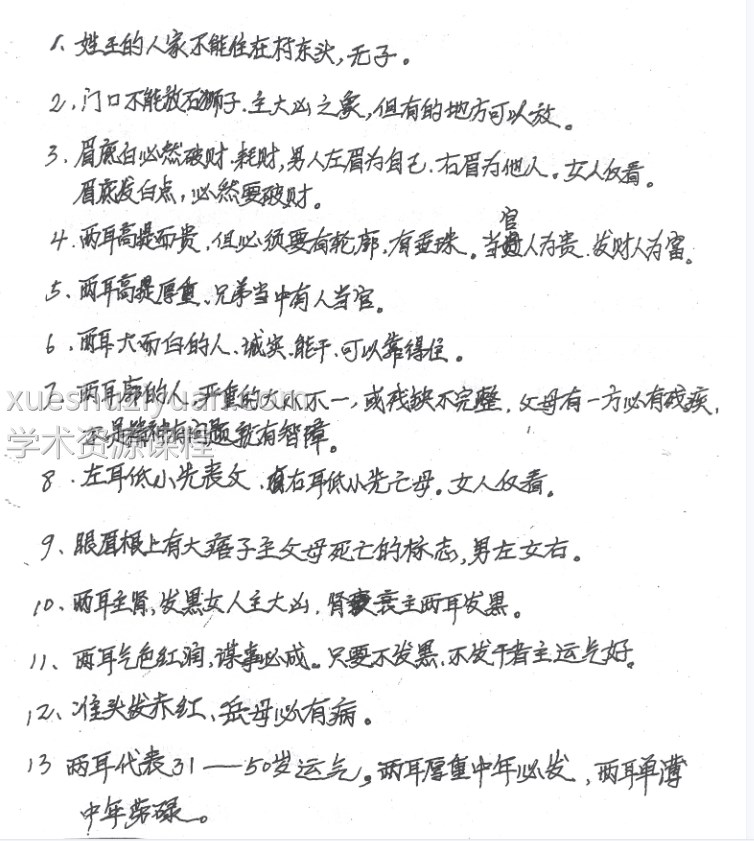 1. 姓王的人家不能住在村东头，无子。
2，门口不能放石狮子.主大凶之象，但有的地方可以放。
3、眉底白必然破财.耗财，男人左眉为自己.右眉为他人。女人反看。
眉底发白点，必然要破财。
官
4.两耳高提而贵，但必须要有轮廓，有垂珠。当人为贵.发财人为富。
5、两耳高提厚重、兄弟当中有人当官。
6.两耳大而白的人、诚实.能干.可以靠得住。
7、两耳廓的人、严重的大小不一，或残缺不完整，父母有一方必有残疾，
xueshuziyuan.com
不是精神有问题就有智障。
学术资源课程
8.左耳低小先丧父.右耳低小先亡母。女人反看。
9、眼眉根上有大痦子主父母死亡的标志，男左女右。
10、两耳主肾，发黑女人主大凶.肾衰主两耳发黑。
11、两耳气色红润，谋事必成。只要不发黑.不发干者主运气好。
12、准头发赤红、岳母必有病。
13 两耳代表31——50岁运气。两耳厚重中年必发，两耳单薄
中年劳碌。